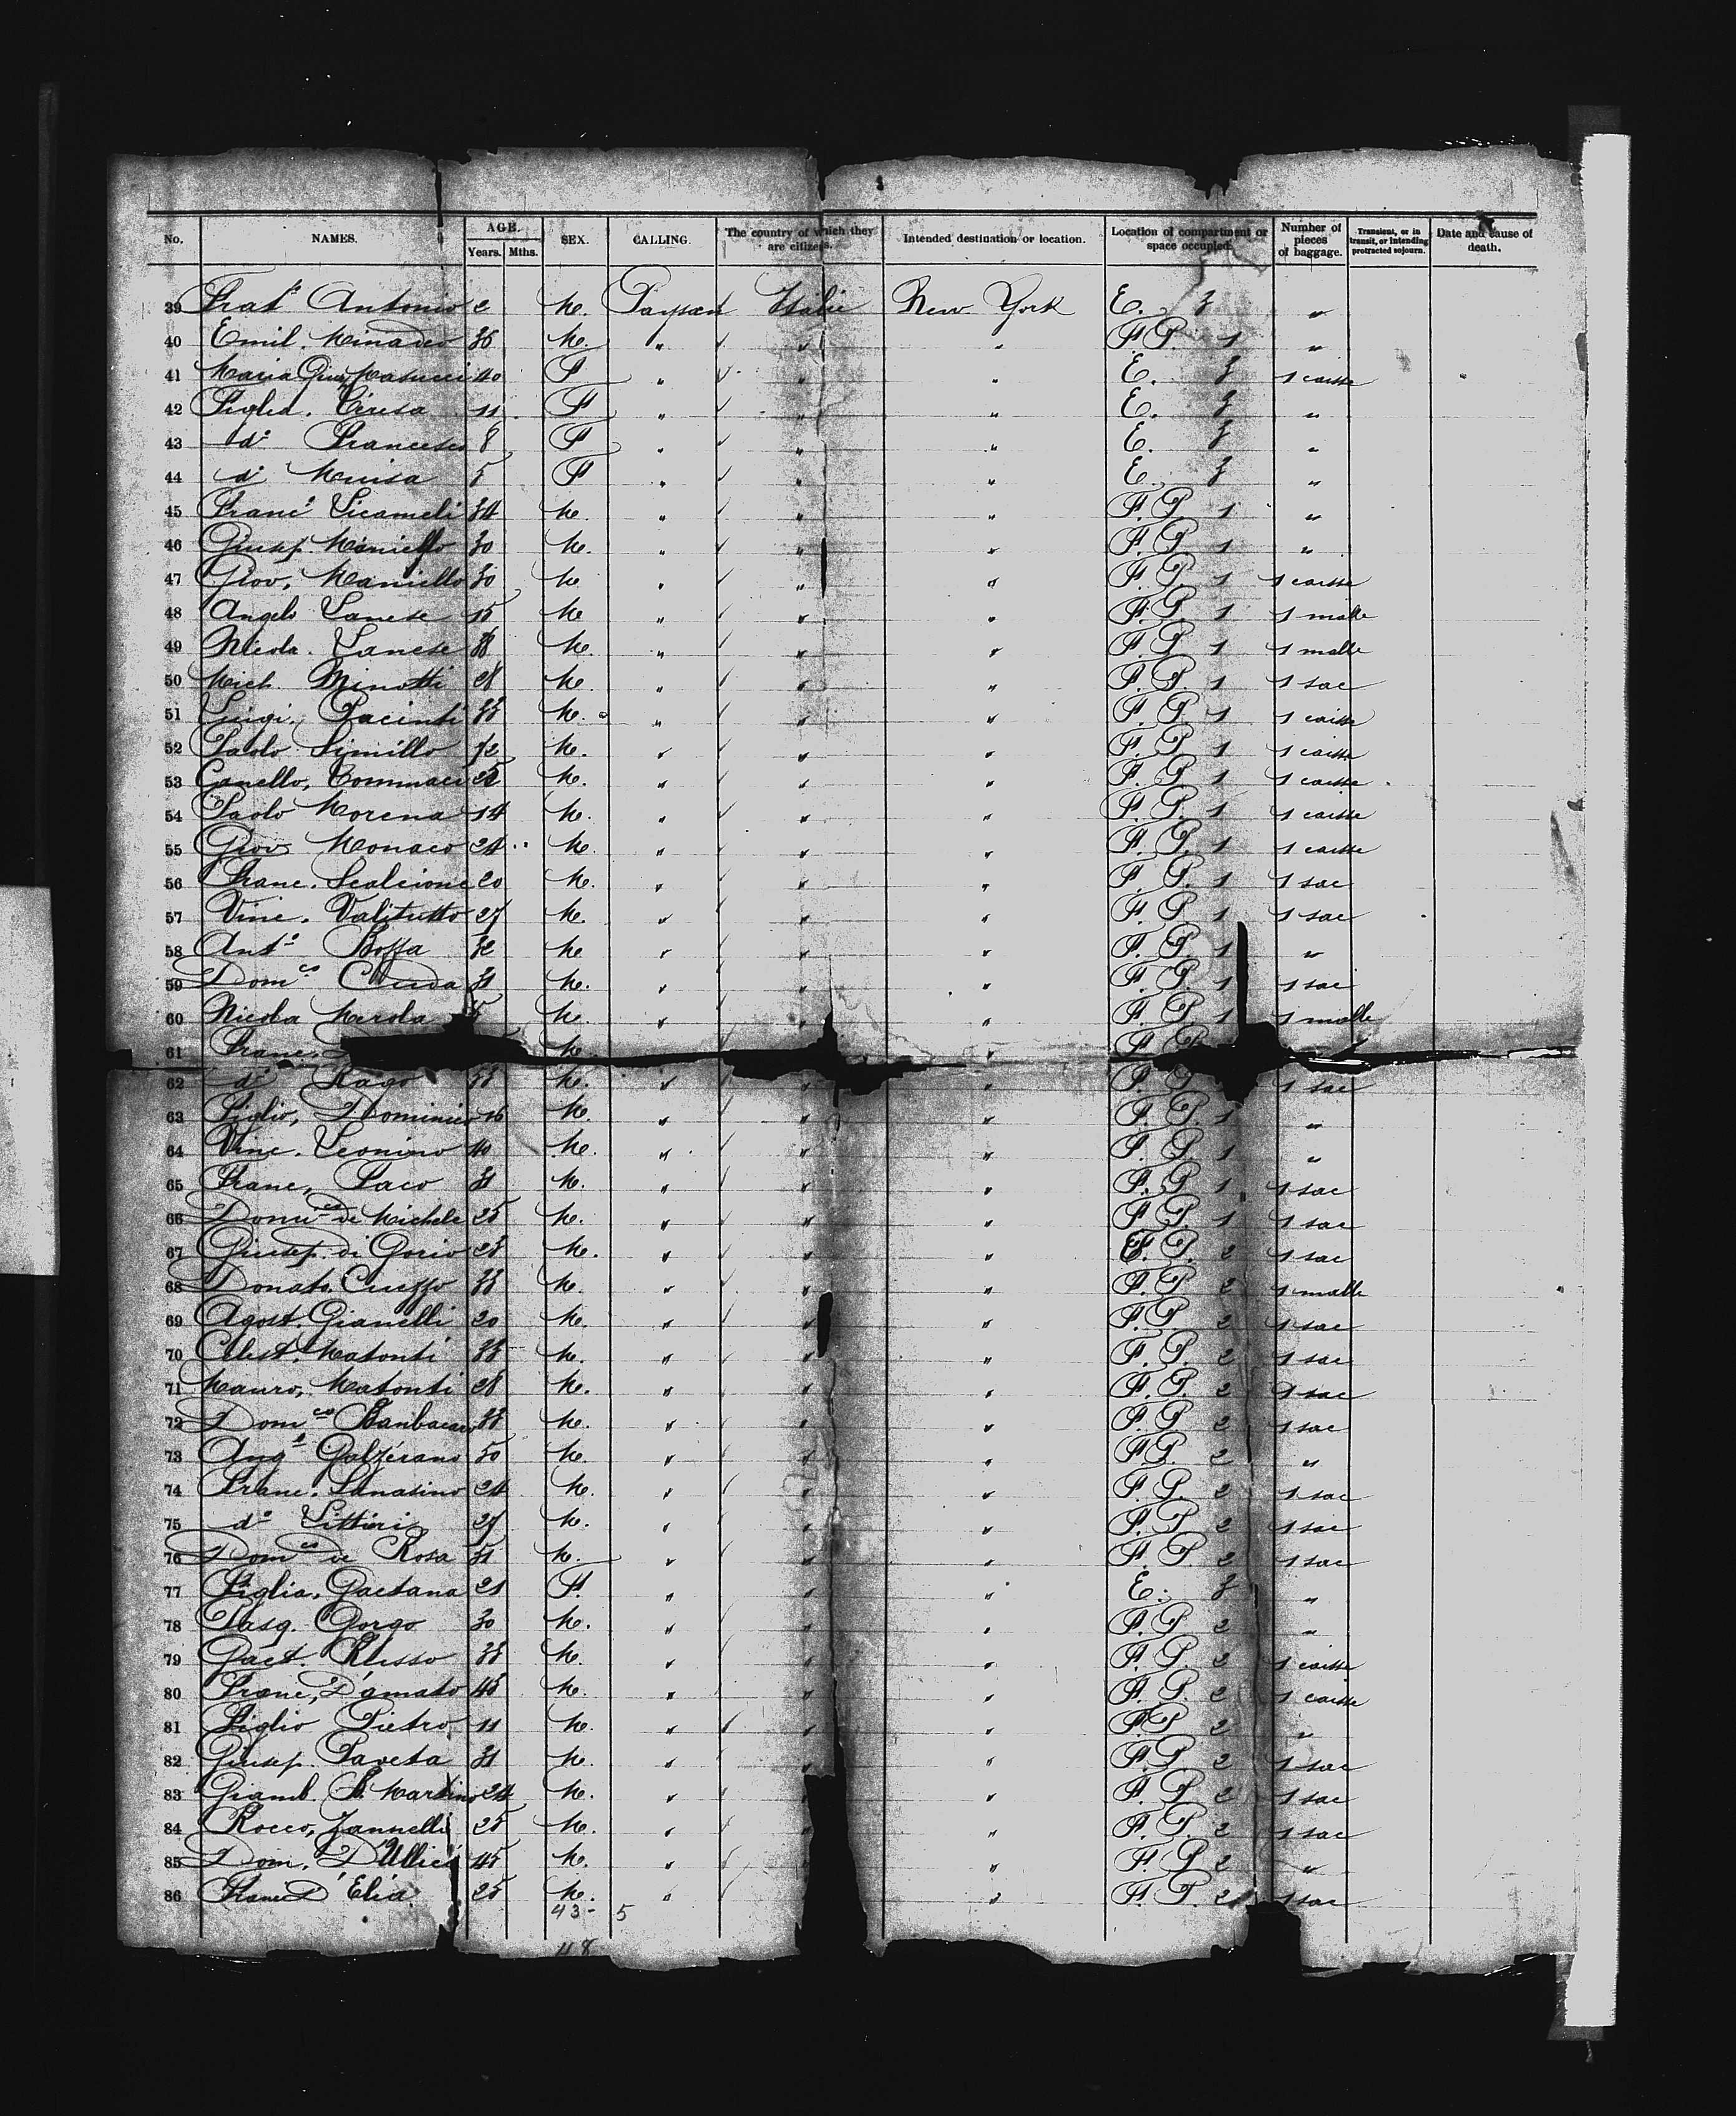 No. NAMES. AGE. Years. Mths. SEX. CALLING. The country of which they are citizens. Intended destination or location. Location of compartment or space occupied. Number of pieces of baggage. Transient, or in transit, or intending protracted sojourn. Date and cause of death.
39 Frat° Antonio 2 M. Paysan Italie New York E. 3 "
40 Emil. Minadeo 36 M. " " " F P. 1 "
41 Maria Gius. Masucci 40 F " " " E. 3 1 caisse
42 Figlia. 11 F " " " E. 3 "
43 d° Francesca 8 F " " " E. 3 "
44 d° 5 F " " " E. 3 "
45 Franc° Licameli 34 M. " " " F. P. 1 "
46 Giusep. Maniello 30 M. " " " F. P. 1 "
47 Giov. Maniello 30 M " " " F. P. 1 1 caisse
48 Angelo Lanese 15 M " " " F. P. 1 1 malle
49 Nicola. Lanese 38 M. " " " F. P. 1 1 malle
50 Mich. Minotti 28 M. " " " F. P. 1 1 sac
51 Luigi. Pacinti 33 M. " " " F. P. 1 1 caisse
52 Paolo Simillo M. " " " F. P. 1 1 caisse
53 Canello, Tommaci M. " " " F. P. 1 1 caisse
54 Paolo Morena 14 M. " " " F. P. 1 1 caisse
55 Giov. Monaco 24 M. " " " F. P. 1 1 caisse
56 Franc. Scalcione 20 M. " " " F. P. 1 1 sac
57 Vinc. Valitutto 27 M. " " " F. P. 1 1 sac
58 Ant° Boffa 32 M " " " F. P. 1 "
59 Dom co 31 M. " " " F. P. 1 1 sac
60 Nicola Merola M. " " " F. P. 1 1 malle
61 Franc. M. " F P
62 d° Rago 33 M. " " " F P 1 sac
63 Figlio, Dominico 16 M. " " " F. P. 1 "
64 Vinc. Leonino 40 M. " " " F. P. 1 "
65 Franc, Paco 31 M. " " " F. P. 1 1 sac
66 Domco de Michele 25 M. " " " F. P. 1 1 sac
67 Giusep. di Gorio 28 M. " " " F. P. 2 1 sac
68 Donato. Cuozzo 33 M. " " " F. P. 2 1 malle
69 Agost. Gianelli 20 M. " " " F. P. 2 1 sac
70 Celest. Matonti 33 M. " " " F. P. 2 1 sac
71 Mauro, Matonti 28 M. " " " F. P. 2 1 sac
72 Dom co 33 M. " " " F. P. 2 1 sac
73 Ang° Galzerano 50 M. " " " F. P. 2 "
74 Franc. Sanasino 24 M. " " " F. P. 2 1 sac
75 d° Littieri 27 M. " " " F. P. 2 1 sac
76 Dom co de Rosa 51 M. " " " F. P. 2 1 sac
77 Figlia, Gaetana 21 F. " " " E. 3 "
78 Pasq. Gorgo 30 M. " " " F. P. 2 "
79 Gaet. Russo 33 M. " " " F. P. 2 1 caisse
80 Franc, D'amato 45 M. " " " F. P. 2 1 caisse
81 Figlio Pietro 11 M. " " " F. P. 2 "
82 Giusep. Paveta 31 M. " " " F. P. 2 1 sac
83 Giamb. Martino 24 M. " " " F. P. 2 1 sac
84 Rocco, Zannelli 25 M. " " " F. P. 2 1 sac
85 Dom. 45 M. " " F. P. 2 "
86 Franc D'Elia 25 M. " " F. P. 2 1 sac
43 - 5
48